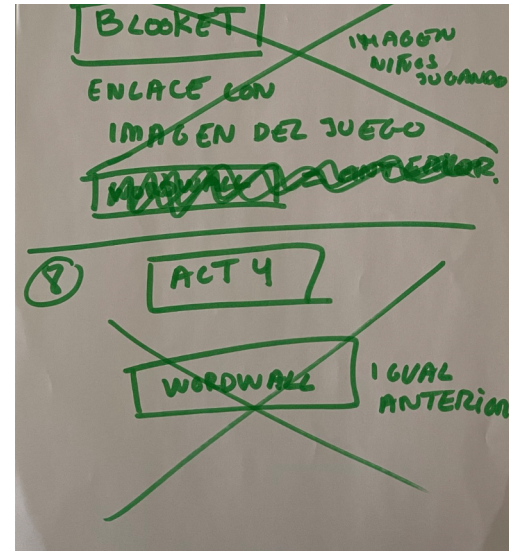 BLOOKET
IMAGEN
NIÑOS
JUGANDO
ENLACE CON
IMAGEN DEL JUEGO
WORDWALL = ANTERIOR.
8
ACT 4
WORDWALL
IGUAL
ANTERIOR